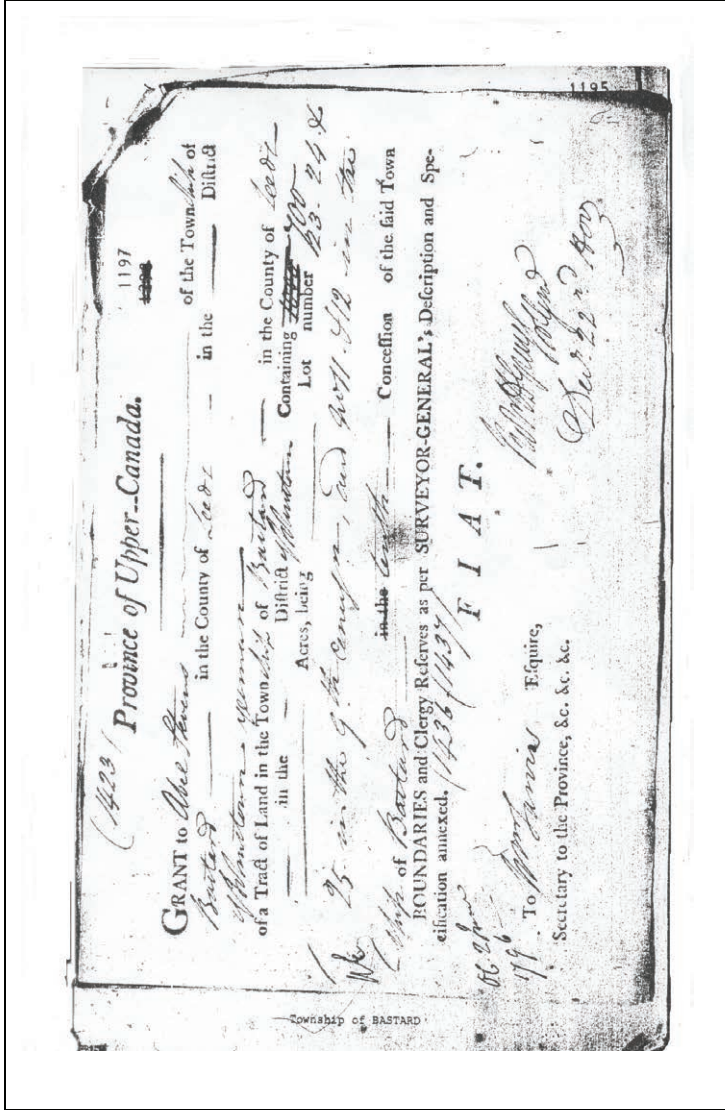 1195
1197
(1423)
Province of Upper--Canada.
GRANT to Abel Stevens of the Township of
Bastard in the County of Leeds in the District
of Johnstown yeoman
of a Tract of Land in the Township of Bastard in the County of Leeds
in the District of Johnstown Containing 700
Acres, being Lot number 23. 24 &
25 in the 9th concession, and No 11 & 12 in the
in the tenth Concession of the said Town
ship of Bastard
BOUNDARIES and Clergy Reserves as per SURVEYOR-GENERAL's, Description and Spe-
cification annexed. (1436/1437)
F I A T.
1796
To Wm Jarvis Esquire,
Secretary to the Province, &c. &c. &c.
22nd
Township of BASTARD